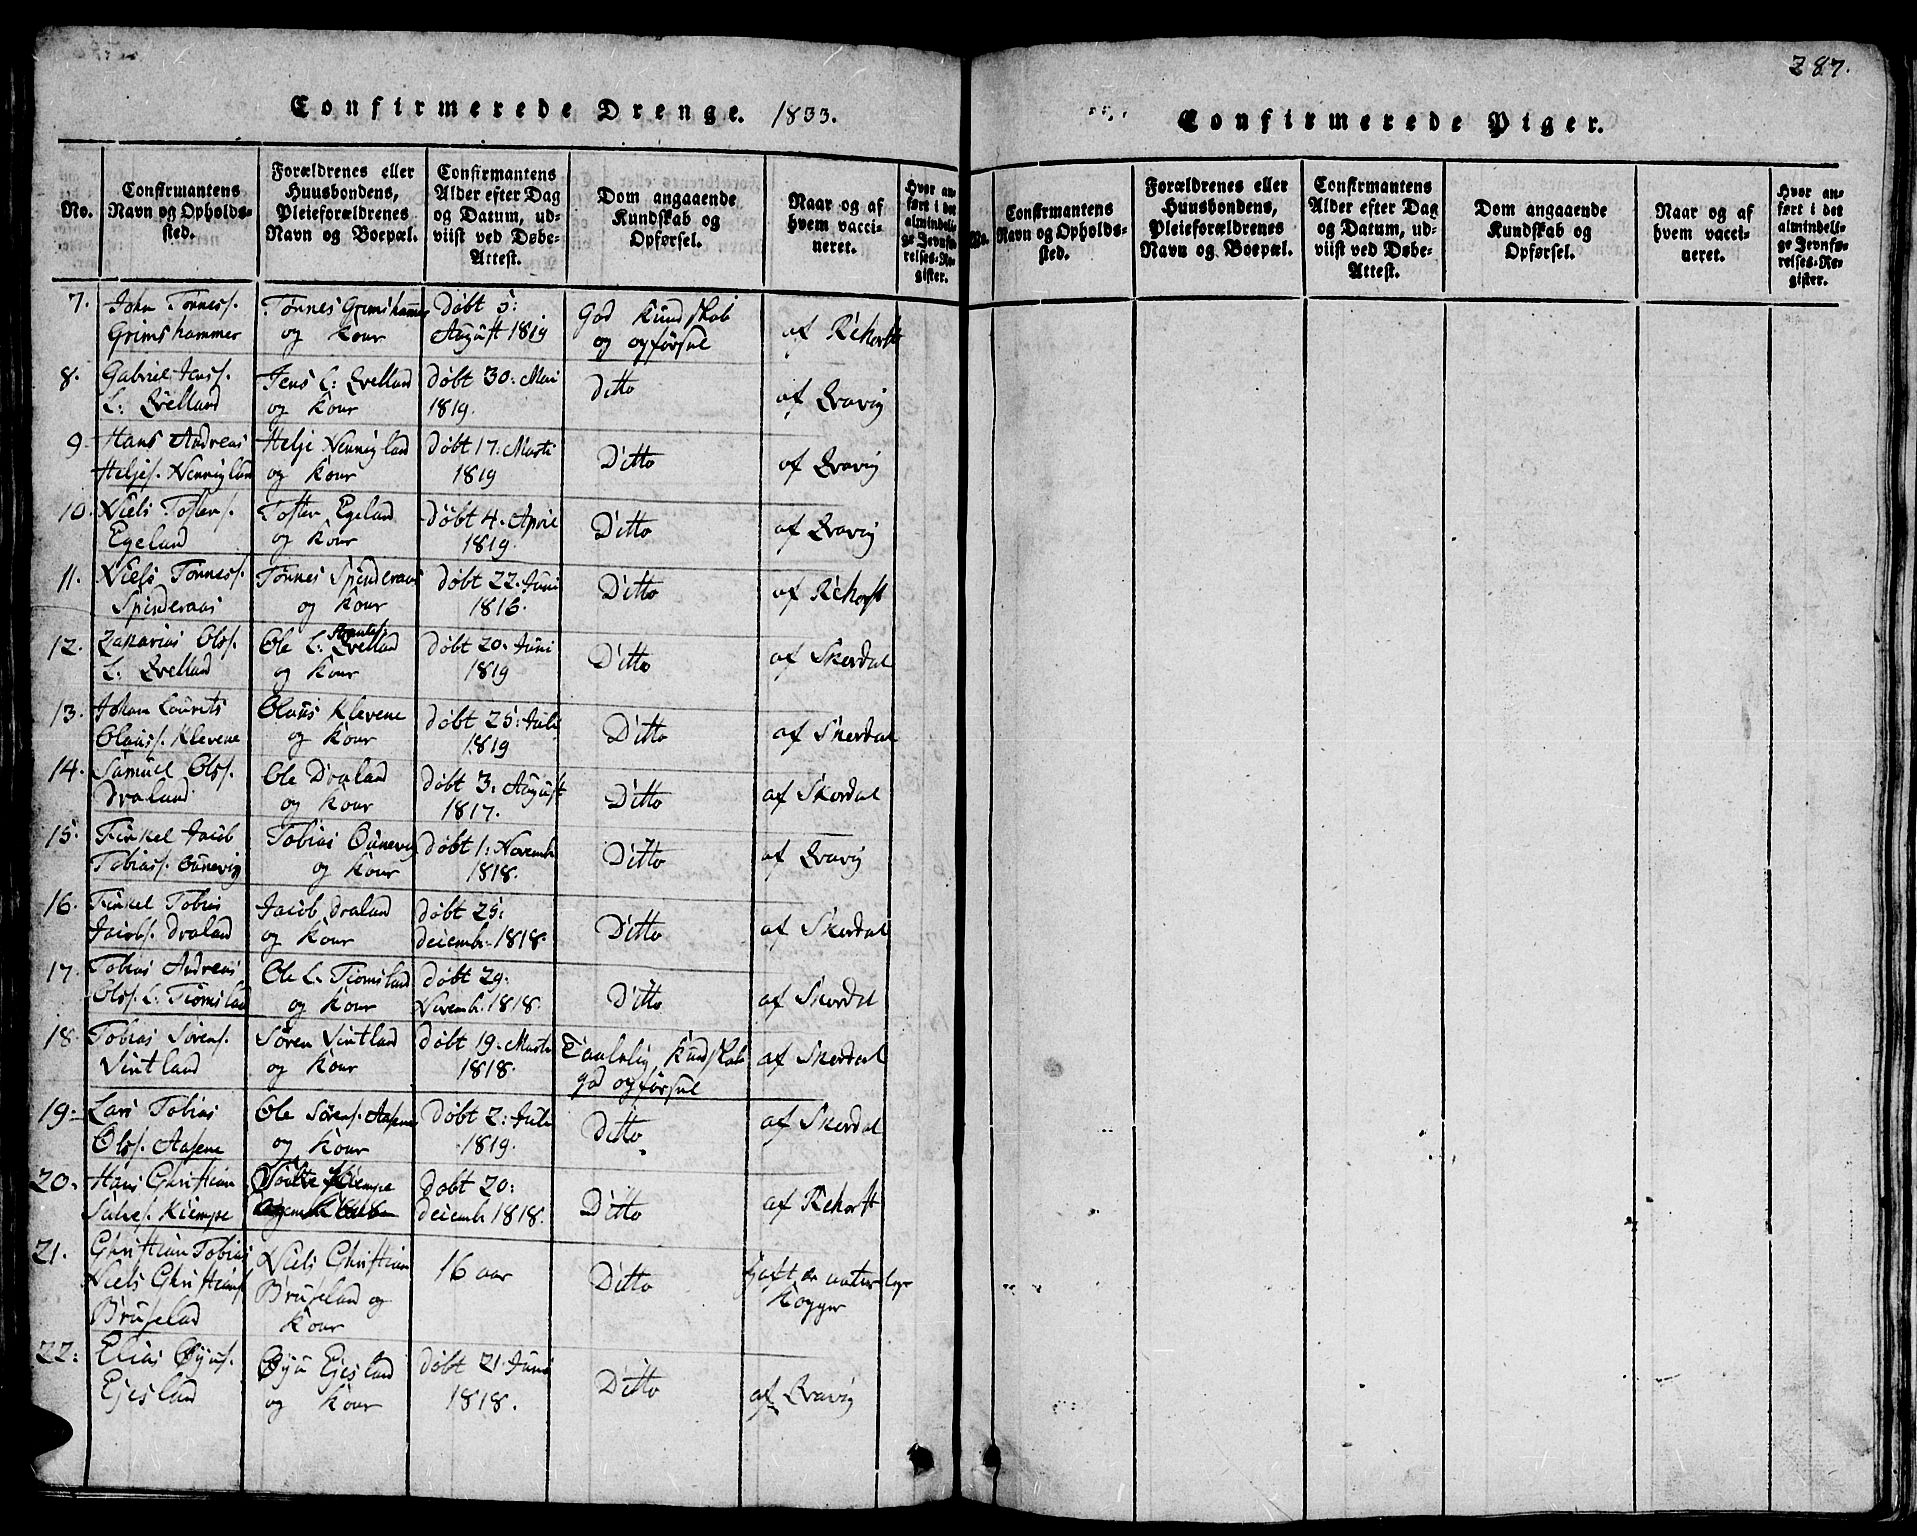 Confirmerede Drenge. 1833.
No.
Confirmantens
Navn og Opholds-
sted.
Forældrenes eller
Huusbondens,
Pleieforældrenes
Navn og Boepæl.
Confirmantens
Alder efter Dag
og Datum, ud-
viist ved Døbe-
Attest.
Dom angaaende
Kundskab og
Opførsel.
Naar og af
hvem vacci-
neret.
Hvor an-
ført i det
almindeli-
ge Jevnfø-
relses-Re-
gister.
7.
John Tønness.
Grimshammer
Tønnes Grimshammer
og Kour
Døbt 5:
August 1819
God Kundskab
og opførsel
af Rehorst
8.
Gabriel Jenss.
L: Qvelland
Jens L: Qvelland
og Kour
døbt 30: Mai
1819.
Ditto
af Qvavig
9.
Hans Andreas
Heljes. Nennigland
Helje Nennigland
og Kour
døbt 17: Marti
1819
Ditto
af Qvavig
10.
Niels Tosters.
Egeland
Toster Egeland
og Kour
Døbt 4. April
1819.
Ditto
af Qvavig
11.
Niels Tønness.
Spinderaas
Tønnes Spinderaas
og Kour
døbt 22. Juni
1816.
Ditto
af Rehorst
12.
Zakarias Ols.
L: Qvelland
Ole L: Qvelland
og Kour
døbt 20. Juni
1819
Ditto
af Skordal
13.
Johan Laurits
Olaiss. Klevene
Olaus Klevene
og Kour
døbt 25: Juli
1819
Ditto
af Skordal
14.
Samuel Ols.
Draland
Ole Draland
og Kour
døbt 3. August
1817.
Ditto
af Skordal
15.
Finkel Jacob
Tobiass. Ounevig
Tobias Ounevig
og Kour
døbt 1: Novemb
1818.
Ditto
af Qvavig
16.
Finkel Tobias
Jacobs. Draland
Jacob Draland
og Kour
døbt 25:
decembr. 1818.
Ditto
af Skordal
17.
Tobias Andreas
Ols. L. Fiomsland
Ole L. Fiomsland
og Kour
døbt 29.
Novemb. 1818.
Ditto
af Skordal
18.
Tobias Sørens.
Sintland
Søren Sintland
og Kour
døbt 19. Marti
1818.
Taalelig Kundskab
god opførsel
af Skordal
19.
Lars Tobias
Ols. Aasene
Ole Sørens. Aasene
og Kour
døbt 2: Juli
1819.
Ditto
af Skordal
20.
Hans Christian
Kiempe
Kiempe
døbt 20:
decemb 1818.
Ditto
af Rehorst
21.
Christian Tobias
Niels Christians.
Bruseland
Niels Christian
Bruseland og
Kour
16 aar
Ditto
havt de naturlige
Kopper
22:
Elias Øyus.
Ejesland
Øyu Ejesland
og Kour
døbt 21. Juni
1818.
Ditto
af Qvavig
287.
Confirmerede Piger.
No.
Confirmantens
Navn og Opholds-
sted.
Forældrenes eller
Huusbondens,
Pleieforældrenes
Navn og Boepæl.
Confirmantens
Alder efter Dag
og Datum, ud-
viist ved Døbe-
Attest.
Dom angaaende
Kundskab og
Opførsel.
Naar og af
hvem vacci-
neret.
Hvor an-
ført i det
almindeli-
ge Jevnfø-
relses-Re-
gister.